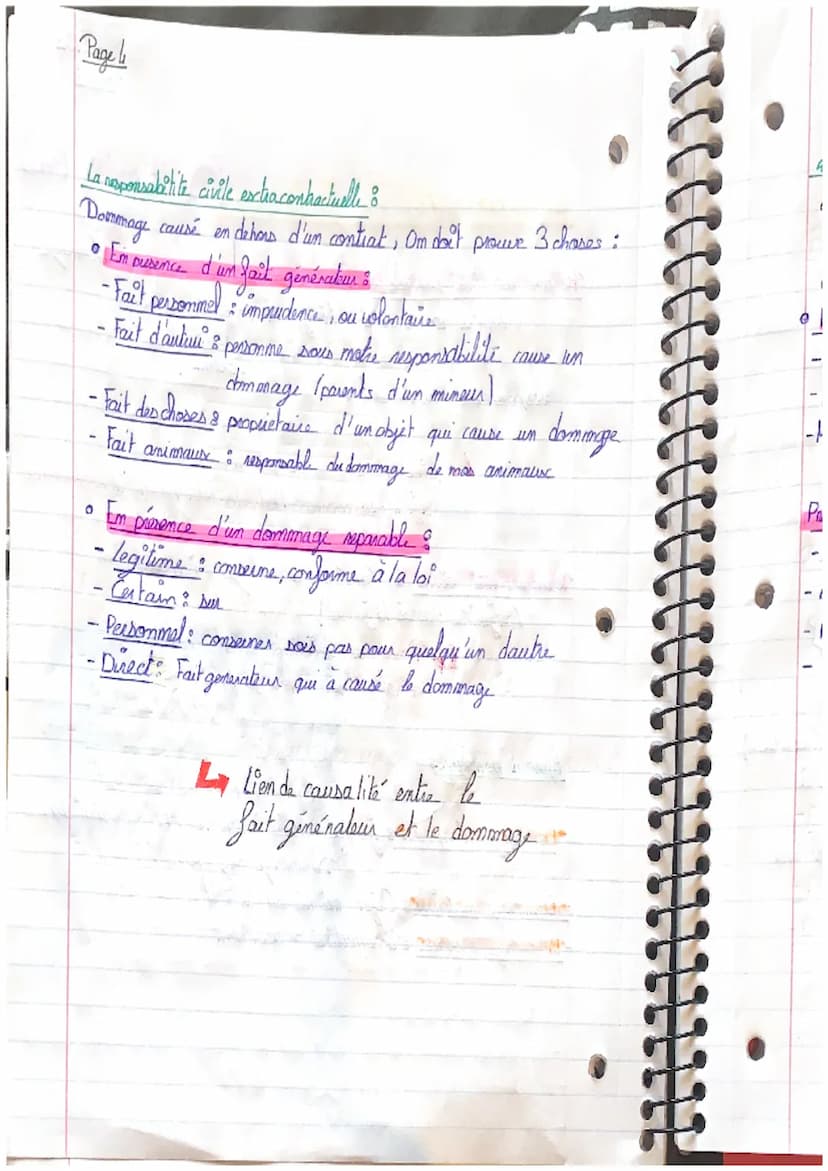 Page 4
La responsabilité civile extracontractuelle :
Dommage causé en dehors d'un contrat, On doit prouve 3 choses :
• En presence d'un fait générateur :
- Fait personnel : imprudence, ou volontaire
- Fait d'autrui : personne sous notre responsabilité cause un
dommage (parents d'un mineur)
- Fait des choses : propriétaire d'un objet qui cause un dommage
- Fait animaux : responsable du dommage de mes animaux
• En présence d'un dommage reparable :
- Legitime : conserne, conforme à la loi
- Certain : sur
- Personnel : conserner sois pas pour quelqu'un dautre
- Direct : Fait generateur qui à causé le dommage
↳ Lien de causalité entre le
fait générateur et le dommage